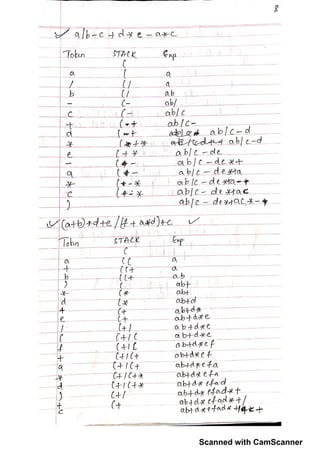 8
a/b-c+d*e-a*c
Token STACK Exp
(
a ( a
/ (/ a
b (/ ab
- (- ab/
c (- ab/c
+ (+ ab/c-
d (+ ab/c-d
* (+* ab/c-d
e (+* ab/c-de
- (- ab/c-de*+
a (- ab/c-de*+a
* (-* ab/c-de*+a
c (-* ab/c-de*+ac
) ab/c-de*+ac*-
(a+b)*d+e/(f+a*d)+c
Token STACK Exp
(
a (( a
+ ((+ a
b ((+ ab
) ( ab+
* (* ab+
d (* ab+d
+ (+ ab+d*
e (+ ab+d*e
/ (+/ ab+d*e
( (+/( ab+d*e
f (+/( ab+d*ef
+ (+/(+ ab+d*ef
a (+/(+ ab+d*efa
* (+/(+* ab+d*efa
d (+/(+* ab+d*efad
) (+/ ab+d*efad*+
+ (+ ab+d*efad*+/
c ab+d*efad*+/+c+
Scanned with CamScanner